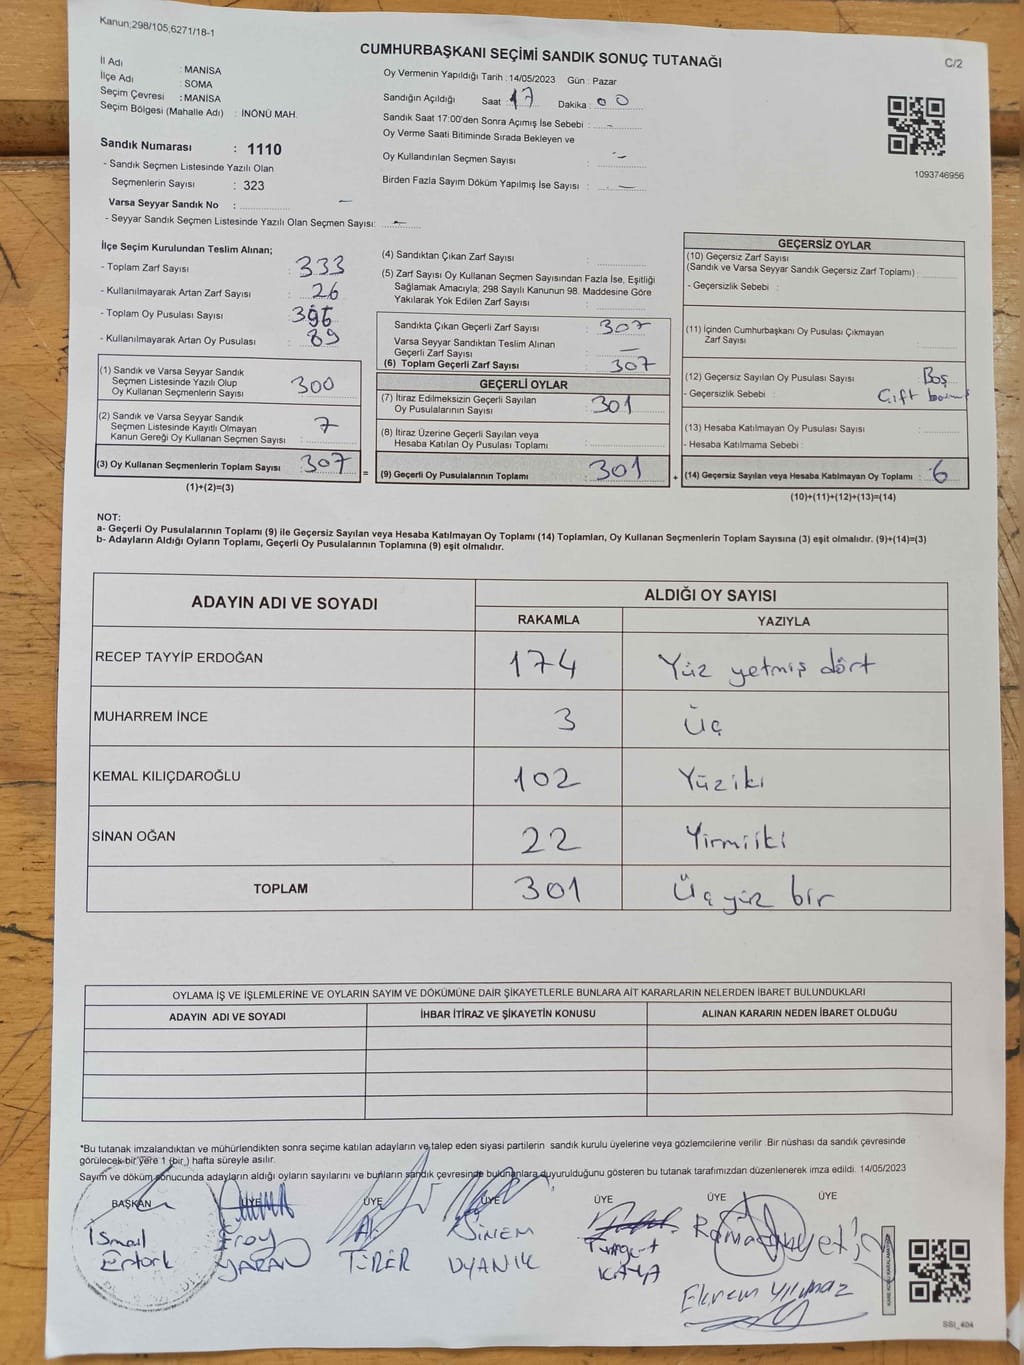 Kanun;298/105,6271/18-1
CUMHURBAŞKANI SEÇİMİ SANDIK SONUÇ TUTANAĞI
C/2
İl Adı : MANİSA
İlçe Adı : SOMA
Seçim Çevresi : MANİSA
Seçim Bölgesi (Mahalle Adı) : İNÖNÜ MAH.
Sandık Numarası : 1110
- Sandık Seçmen Listesinde Yazılı Olan
Seçmenlerin Sayısı : 323
Varsa Seyyar Sandık No : –
- Seyyar Sandık Seçmen Listesinde Yazılı Olan Seçmen Sayısı: –
Oy Vermenin Yapıldığı Tarih : 14/05/2023 Gün : Pazar
Sandığın Açıldığı Saat : 17 Dakika : 00
Sandık Saat 17:00'den Sonra Açımış İse Sebebi : –
Oy Verme Saati Bitiminde Sırada Bekleyen ve
Oy Kullandırılan Seçmen Sayısı : –
Birden Fazla Sayım Döküm Yapılmış İse Sayısı : –
1093746956
İlçe Seçim Kurulundan Teslim Alınan;
- Toplam Zarf Sayısı : 333
- Kullanılmayarak Artan Zarf Sayısı : 26
- Toplam Oy Pusulası Sayısı : 396
- Kullanılmayarak Artan Oy Pusulası : 89
(1) Sandık ve Varsa Seyyar Sandık
Seçmen Listesinde Yazılı Olup
Oy Kullanan Seçmenlerin Sayısı 300
(2) Sandık ve Varsa Seyyar Sandık
Seçmen Listesinde Kayıtlı Olmayan
Kanun Gereği Oy Kullanan Seçmen Sayısı : 7
(3) Oy Kullanan Seçmenlerin Toplam Sayısı : 307
(1)+(2)=(3)
(4) Sandıktan Çıkan Zarf Sayısı :
(5) Zarf Sayısı Oy Kullanan Seçmen Sayısından Fazla İse, Eşitliği
Sağlamak Amacıyla; 298 Sayılı Kanunun 98. Maddesine Göre
Yakılarak Yok Edilen Zarf Sayısı :
Sandıkta Çıkan Geçerli Zarf Sayısı : 307
Varsa Seyyar Sandıktan Teslim Alınan
Geçerli Zarf Sayısı : –
(6) Toplam Geçerli Zarf Sayısı : 307
GEÇERLİ OYLAR
(7) İtiraz Edilmeksizin Geçerli Sayılan
Oy Pusulalarının Sayısı : 301
(8) İtiraz Üzerine Geçerli Sayılan veya
Hesaba Katılan Oy Pusulası Toplamı :
= (9) Geçerli Oy Pusulalarının Toplamı : 301
GEÇERSİZ OYLAR
(10) Geçersiz Zarf Sayısı
(Sandık ve Varsa Seyyar Sandık Geçersiz Zarf Toplamı) :
- Geçersizlik Sebebi :
(11) İçinden Cumhurbaşkanı Oy Pusulası Çıkmayan
Zarf Sayısı :
(12) Geçersiz Sayılan Oy Pusulası Sayısı : Boş
- Geçersizlik Sebebi : Çift
(13) Hesaba Katılmayan Oy Pusulası Sayısı :
- Hesaba Katılmama Sebebi :
+ (14) Geçersiz Sayılan veya Hesaba Katılmayan Oy Toplamı : 6
(10)+(11)+(12)+(13)=(14)
NOT:
a- Geçerli Oy Pusulalarının Toplamı (9) ile Geçersiz Sayılan veya Hesaba Katılmayan Oy Toplamı (14) Toplamları, Oy Kullanan Seçmenlerin Toplam Sayısına (3) eşit olmalıdır. (9)+(14)=(3)
b- Adayların Aldığı Oyların Toplamı, Geçerli Oy Pusulalarının Toplamına (9) eşit olmalıdır.
ADAYIN ADI VE SOYADI
ALDIĞI OY SAYISI
RAKAMLA YAZIYLA
RECEP TAYYİP ERDOĞAN 174 Yüz yetmiş dört
MUHARREM İNCE 3 Üç
KEMAL KILIÇDAROĞLU 102 Yüziki
SİNAN OĞAN 22 Yirmiiki
TOPLAM 301 Üçyüz bir
OYLAMA İŞ VE İŞLEMLERİNE VE OYLARIN SAYIM VE DÖKÜMÜNE DAİR ŞİKAYETLERLE BUNLARA AİT KARARLARIN NELERDEN İBARET BULUNDUKLARI
ADAYIN ADI VE SOYADI İHBAR İTİRAZ VE ŞİKAYETİN KONUSU ALINAN KARARIN NEDEN İBARET OLDUĞU
*Bu tutanak imzalandıktan ve mühürlendikten sonra seçime katılan adayların ve talep eden siyasi partilerin sandık kurulu üyelerine veya gözlemcilerine verilir. Bir nüshası da sandık çevresinde
görülecek bir yere 1 (bir ) hafta süreyle asılır.
Sayım ve döküm sonucunda adayların aldığı oyların sayılarını ve bunların sandık çevresinde bulunanlara duyurulduğunu gösteren bu tutanak tarafımızdan düzenlenerek imza edildi. 14/05/2023
BAŞKAN ÜYE ÜYE ÜYE ÜYE ÜYE ÜYE
İsmail Ertürk
Eray YARAN
Ali TÜRER
SİNEM UYANIK
Turgut KAYA
Ekrem Yılmaz
SSI_404